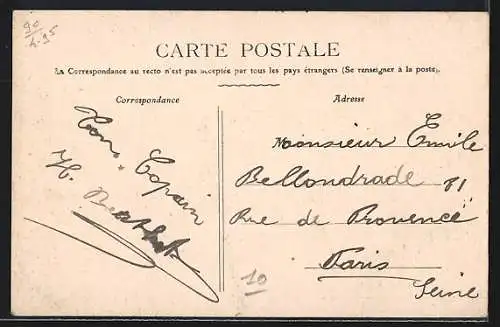 90
4-95
CARTE POSTALE
La Correspondance au recto n'est pas acceptée par tous les pays étrangers (Se renseigner à la poste).
Correspondance
Adresse
Ton Copain
H. Berthet
Monsieur Emile
Bellondrade 71
Rue de Provence
Paris
Seine
10